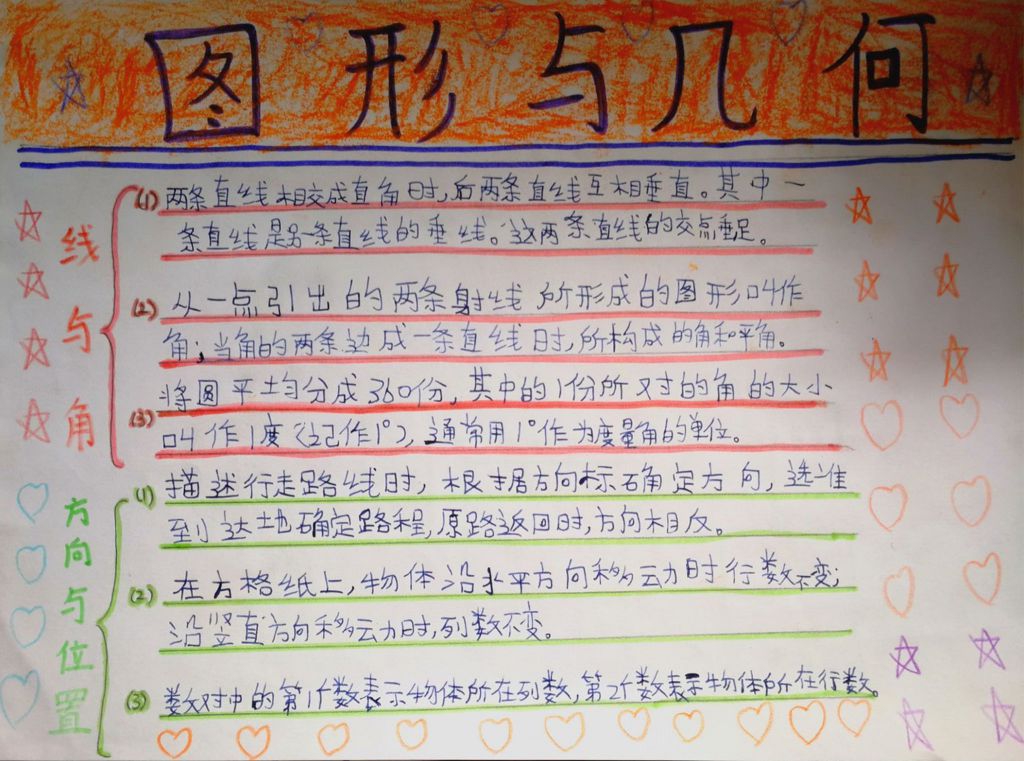 图形与几何
线与角
(1) 两条直线相交成直角时,后两条直线互相垂直。其中一
条直线是另一条直线的垂线。这两条直线的交点垂足。
(2) 从一点引出的两条射线所形成的图形叫作
角;当角的两条边成一条直线时,所构成的角和平角。
将圆平均分成360份,其中的1份所对的角的大小
(3) 叫作1度(记作1°),通常用1°作为度量角的单位。
方向与位置
(1) 描述行走路线时,根据方向标确定方向,选准
到达地确定路程,原路返回时,方向相反。
(2) 在方格纸上,物体沿水平方向移动时行数不变;
沿竖直方向移动时,列数不变。
(3) 数对中的第1个数表示物体所在列数,第2个数表示物体所在行数。